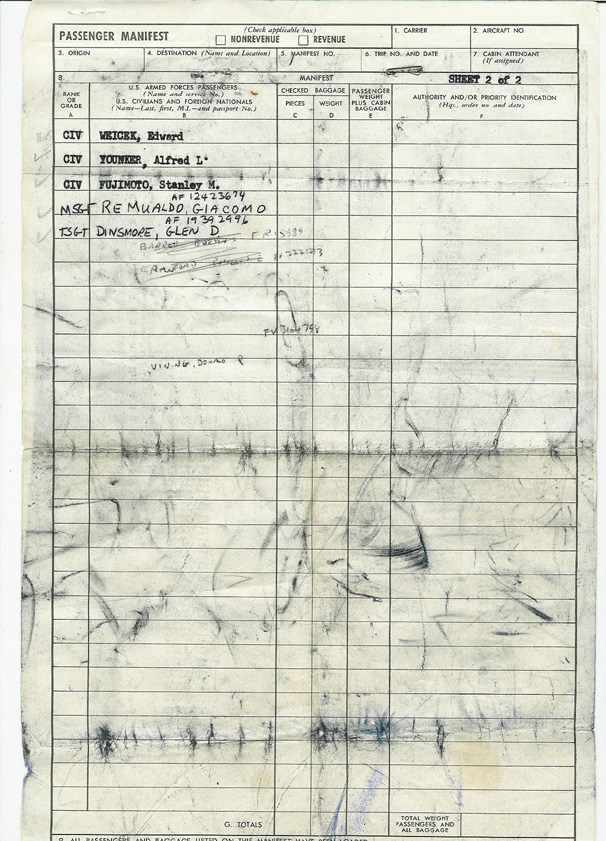 PASSENGER MANIFEST
(Check applicable box)
NONREVENUE REVENUE
1. CARRIER
2. AIRCRAFT NO.
3. ORIGIN
4. DESTINATION (Name and Location)
5. MANIFEST NO.
6. TRIP NO. AND DATE
7. CABIN ATTENDANT
(If assigned)
8.
MANIFEST
SHEET 2 of 2
RANK
OR
GRADE
A
U.S. ARMED FORCES PASSENGERS
(Name and service No.)
U.S. CIVILIANS AND FOREIGN NATIONALS
(Name—Last, first, M.I.—and passport No.)
B
CHECKED BAGGAGE
PIECES WEIGHT
C D
PASSENGER
WEIGHT
PLUS CABIN
BAGGAGE
E
AUTHORITY AND/OR PRIORITY IDENTIFICATION
(Hqs., order no and date)
F
CIV WEICEK, Edward
CIV YOUNKER, Alfred L.
CIV FUJIMOTO, Stanley M.
AF 12423674
MSGT REMUALDO, GIACOMO
AF 19392996
TSGT DINSMORE, GLEN D
FV3104798
VINING, DONALD P
G. TOTALS
TOTAL WEIGHT
PASSENGERS AND
ALL BAGGAGE
9. ALL PASSENGERS AND BAGGAGE LISTED ON THIS MANIFEST HAVE BEEN LOADED